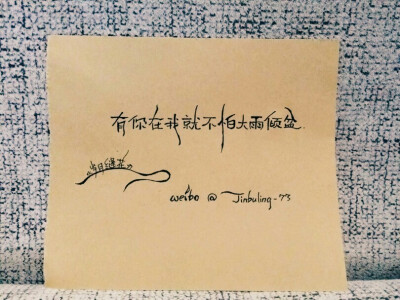 有你在我就不怕大雨倾盆
weibo @ Jinbuling-73